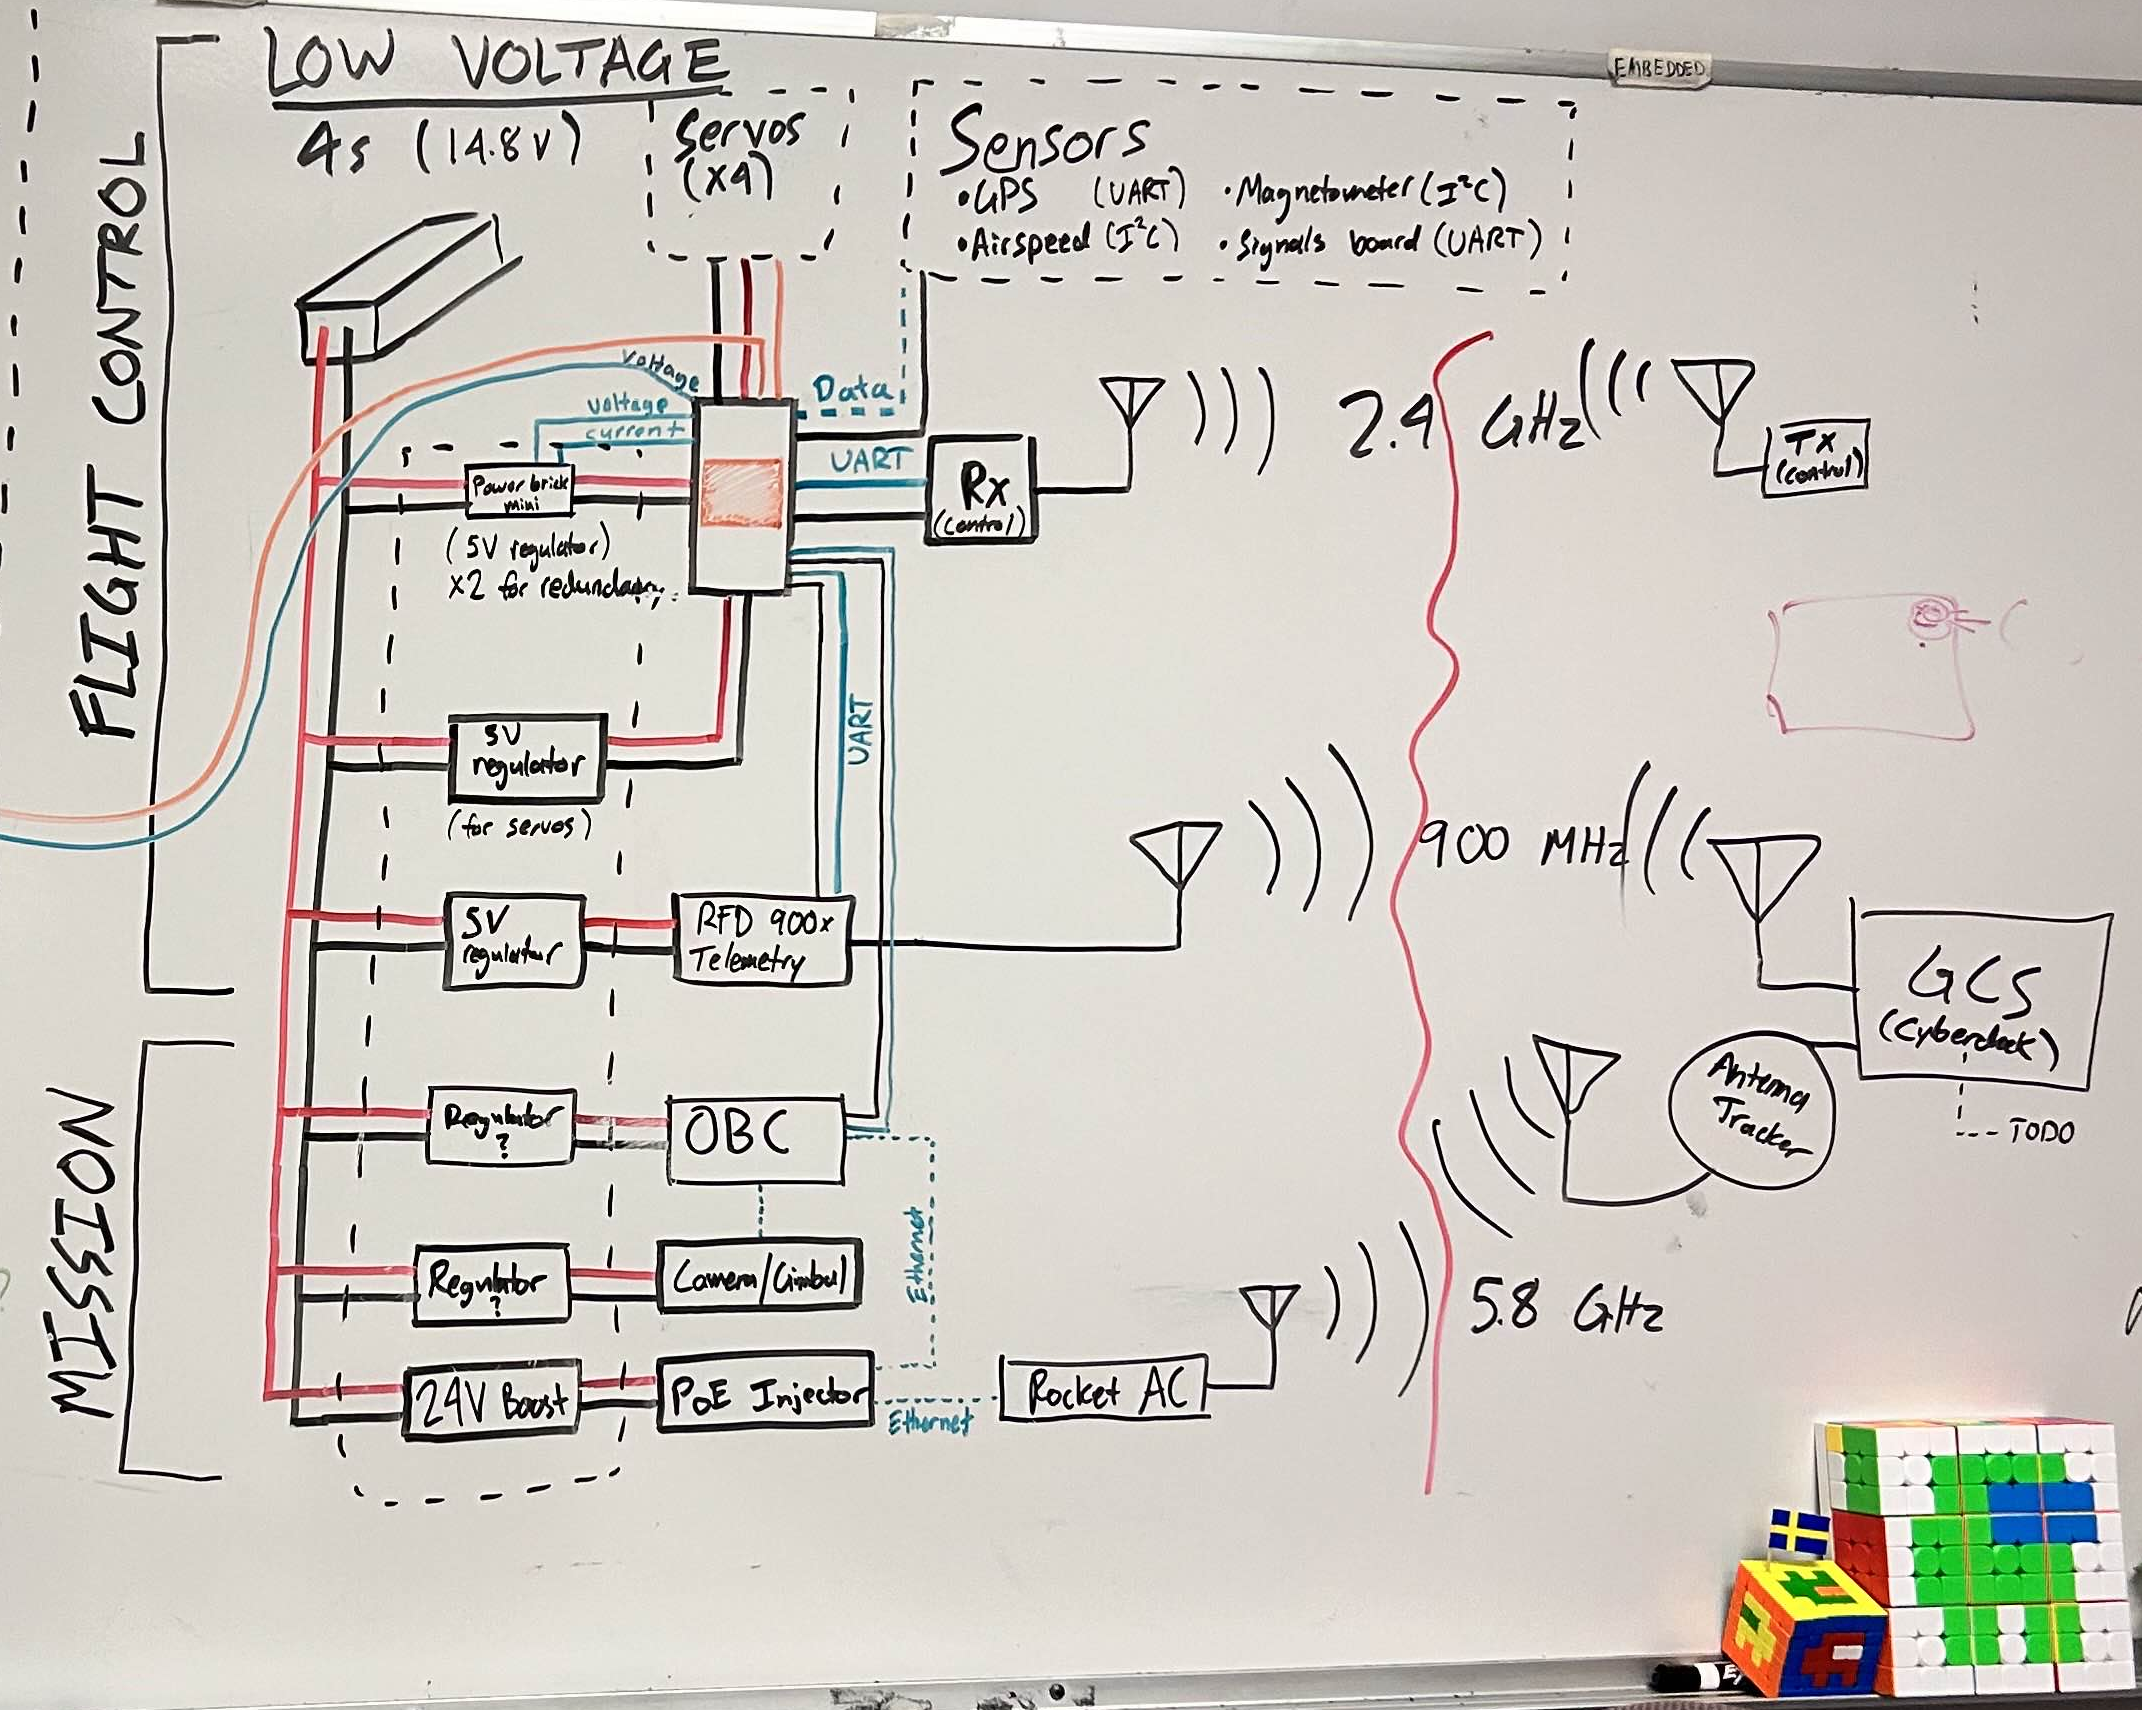 EMBEDDED
LOW VOLTAGE
4s (14.8V)
FLIGHT CONTROL
MISSION
Servos
(x4)
Sensors
•GPS (UART) •Magnetometer (I²C)
•Airspeed (I²C) •Signals board (UART)
Voltage
Voltage
current
Data
UART
Power brick
mini
(5V regulator)
x2 for redundancy
Rx
(control)
2.4 GHz
TX
(control)
5V
regulator
(for servos)
UART
5V
regulator
RFD 900x
Telemetry
900 MHz
GCS
(Cyberdeck)
TODO
Antenna
Tracker
Regulator
?
OBC
Ethernet
Regulator
?
Camera/Gimbal
5.8 GHz
24V Boost
PoE Injector
Ethernet
Rocket AC